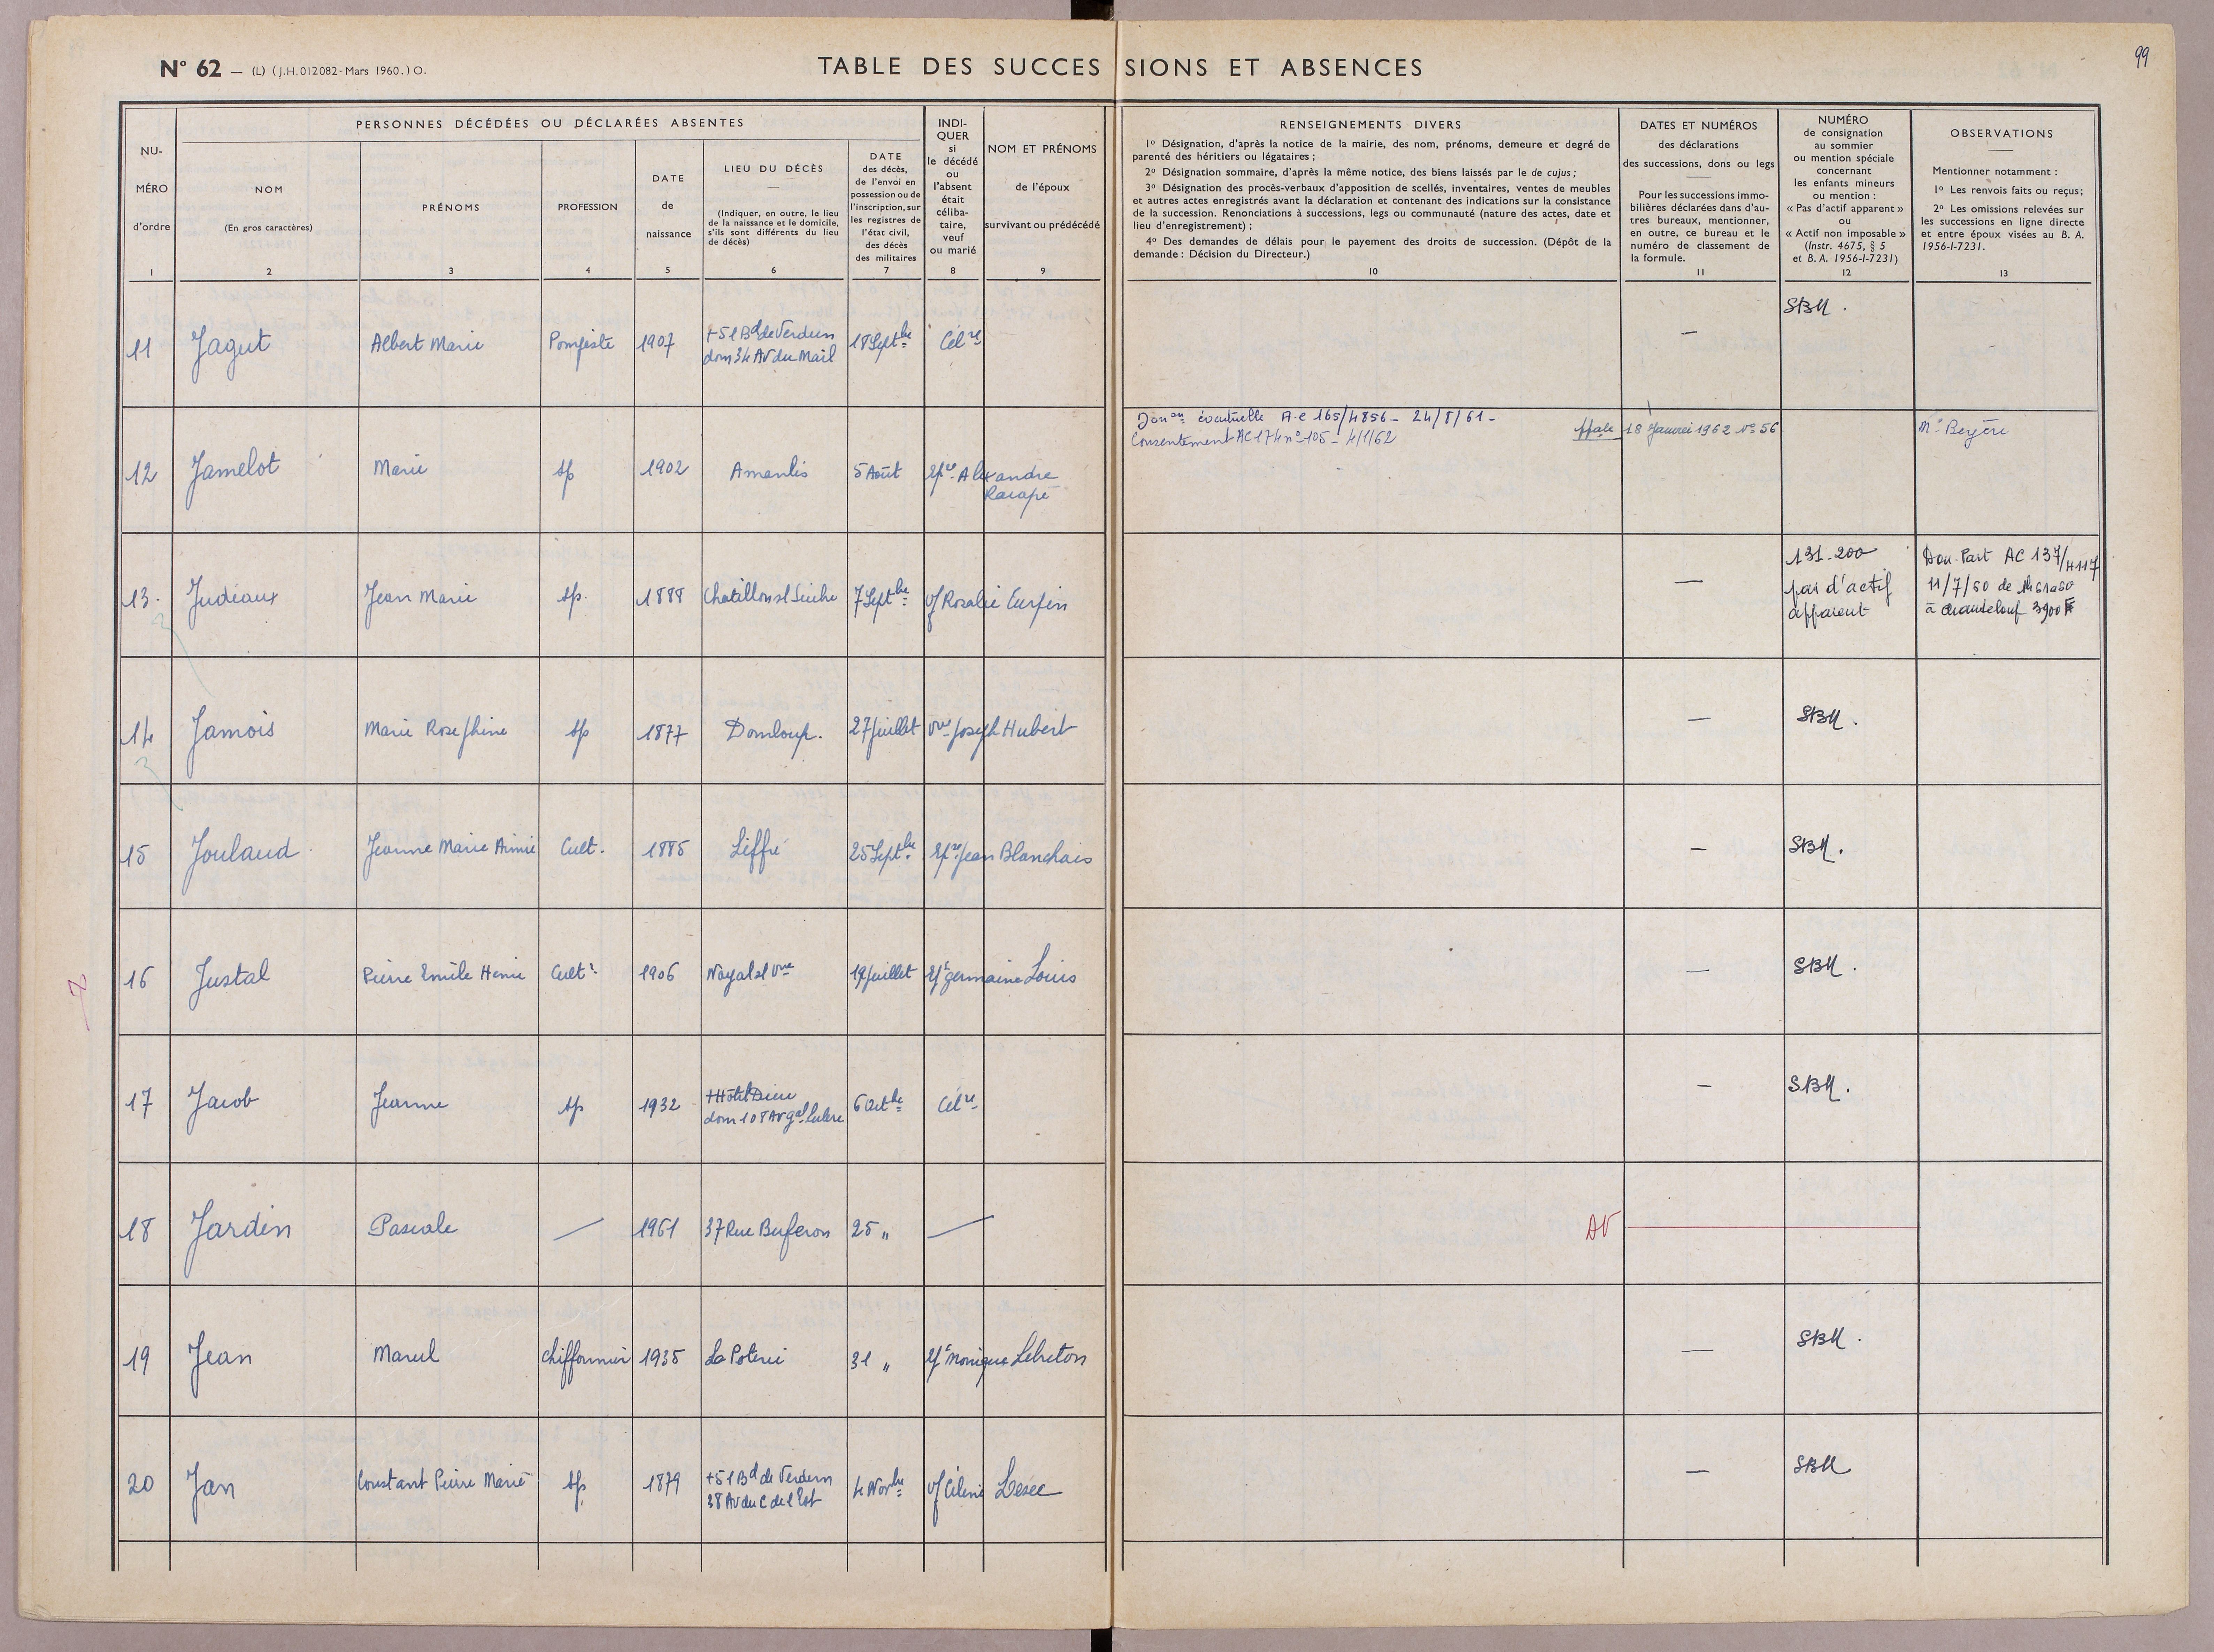 99
N° 62 — (L) (J.H. 012082-Mars 1960.) O.
TABLE DES SUCCESSIONS ET ABSENCES
PERSONNES DÉCÉDÉES OU DÉCLARÉES ABSENTES
NU-
MÉRO
d'ordre
1
NOM
(En gros caractères)
2
PRÉNOMS
3
PROFESSION
4
DATE
de
naissance
5
LIEU DU DÉCÈS
(Indiquer, en outre, le lieu
de la naissance et le domicile,
s'ils sont différents du lieu
de décès)
6
DATE
des décès,
de l'envoi en
possession ou de
l'inscription, sur
les registres de
l'état civil,
des décès
des militaires
7
INDI-
QUER
si
le décédé
ou
l'absent
était
céliba-
taire,
veuf
ou marié
8
NOM ET PRÉNOMS
de l'époux
survivant ou prédécédé
9
RENSEIGNEMENTS DIVERS
1° Désignation, d'après la notice de la mairie, des nom, prénoms, demeure et degré de
parenté des héritiers ou légataires ;
2° Désignation sommaire, d'après la même notice, des biens laissés par le de cujus ;
3° Désignation des procès-verbaux d'apposition de scellés, inventaires, ventes de meubles
et autres actes enregistrés avant la déclaration et contenant des indications sur la consistance
de la succession. Renonciations à successions, legs ou communauté (nature des actes, date et
lieu d'enregistrement) ;
4° Des demandes de délais pour le payement des droits de succession. (Dépôt de la
demande : Décision du Directeur.)
10
DATES ET NUMÉROS
des déclarations
des successions, dons ou legs
Pour les successions immo-
bilières déclarées dans d'au-
tres bureaux, mentionner,
en outre, ce bureau et le
numéro de classement de
la formule.
11
NUMÉRO
de consignation
au sommier
ou mention spéciale
concernant
les enfants mineurs
ou mention :
« Pas d'actif apparent »
ou
« Actif non imposable »
(Instr. 4675, § 5
et B. A. 1956-I-7231)
12
OBSERVATIONS
Mentionner notamment :
1° Les renvois faits ou reçus;
2° Les omissions relevées sur
les successions en ligne directe
et entre époux visées au B. A.
1956-I-7231.
13
11 Jagut Albert Marie Pompiste 1907 +51 Bd de Verdun 18 Septbre Célre — SBM.
dom 34 Av du Mail
12 Jamelot Marie sp 1902 Amanlis 5 Août Epse Alexandre
Racapé
Donon éventuelle A.C 165/4856 - 24/8/61 -
Consentement AC 174 n° 105 - 4/1/62
18 Janvier 1962 N° 56
13. Judeaux Jean Marie sp. 1888 Chatillon sl Seiche 7 Septbre Vf Rosalie Eurfin —
131-200
pas d'actif
apparent
Don-Part AC 137/4117
11/7/60 de
à Chanteloup 3900 F
14 Jamois Marie Rosephine sp 1877 Domloup. 27 juillet Vve Joseph Hubert — SBM.
15 Joulaud Jeanne Marie Aimée Cult. 1885 Liffré 25 Septbre Epse Jean Blanchais — SBM.
16 Justal Pierre Emile Henri Cultr 1906 Noyal sl Vne 19 juillet Ep germaine Louis — SBM.
17 Jacob Jeanne sp 1932 + Hôtel Dieu 6 Octbre Célre — SBM.
dom 108 Av gal Leclerc
18 Jardin Pascale — 1961 37 Rue 25 " — AV
19 Jean Marcel Chiffonnier 1935 La Poterie 31 " Ep Monique Lebreton — SBM.
20 Jan Constant Pierre Marie sp 1879 +51 Bd de Verdun 4 Novbre Vf Céline — SBM
38 Av du C de l'Est